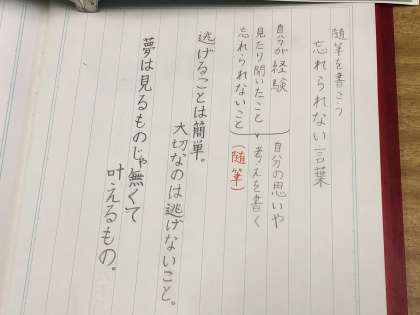 随筆を書こう
忘れられない言葉
自分が経験
見たり聞いたこと
忘れられないこと
自分の思いや
考えを書く
(随筆)
逃げることは簡単。
大切なのは逃げないこと。
夢は見るものじゃ無くて
叶えるもの。